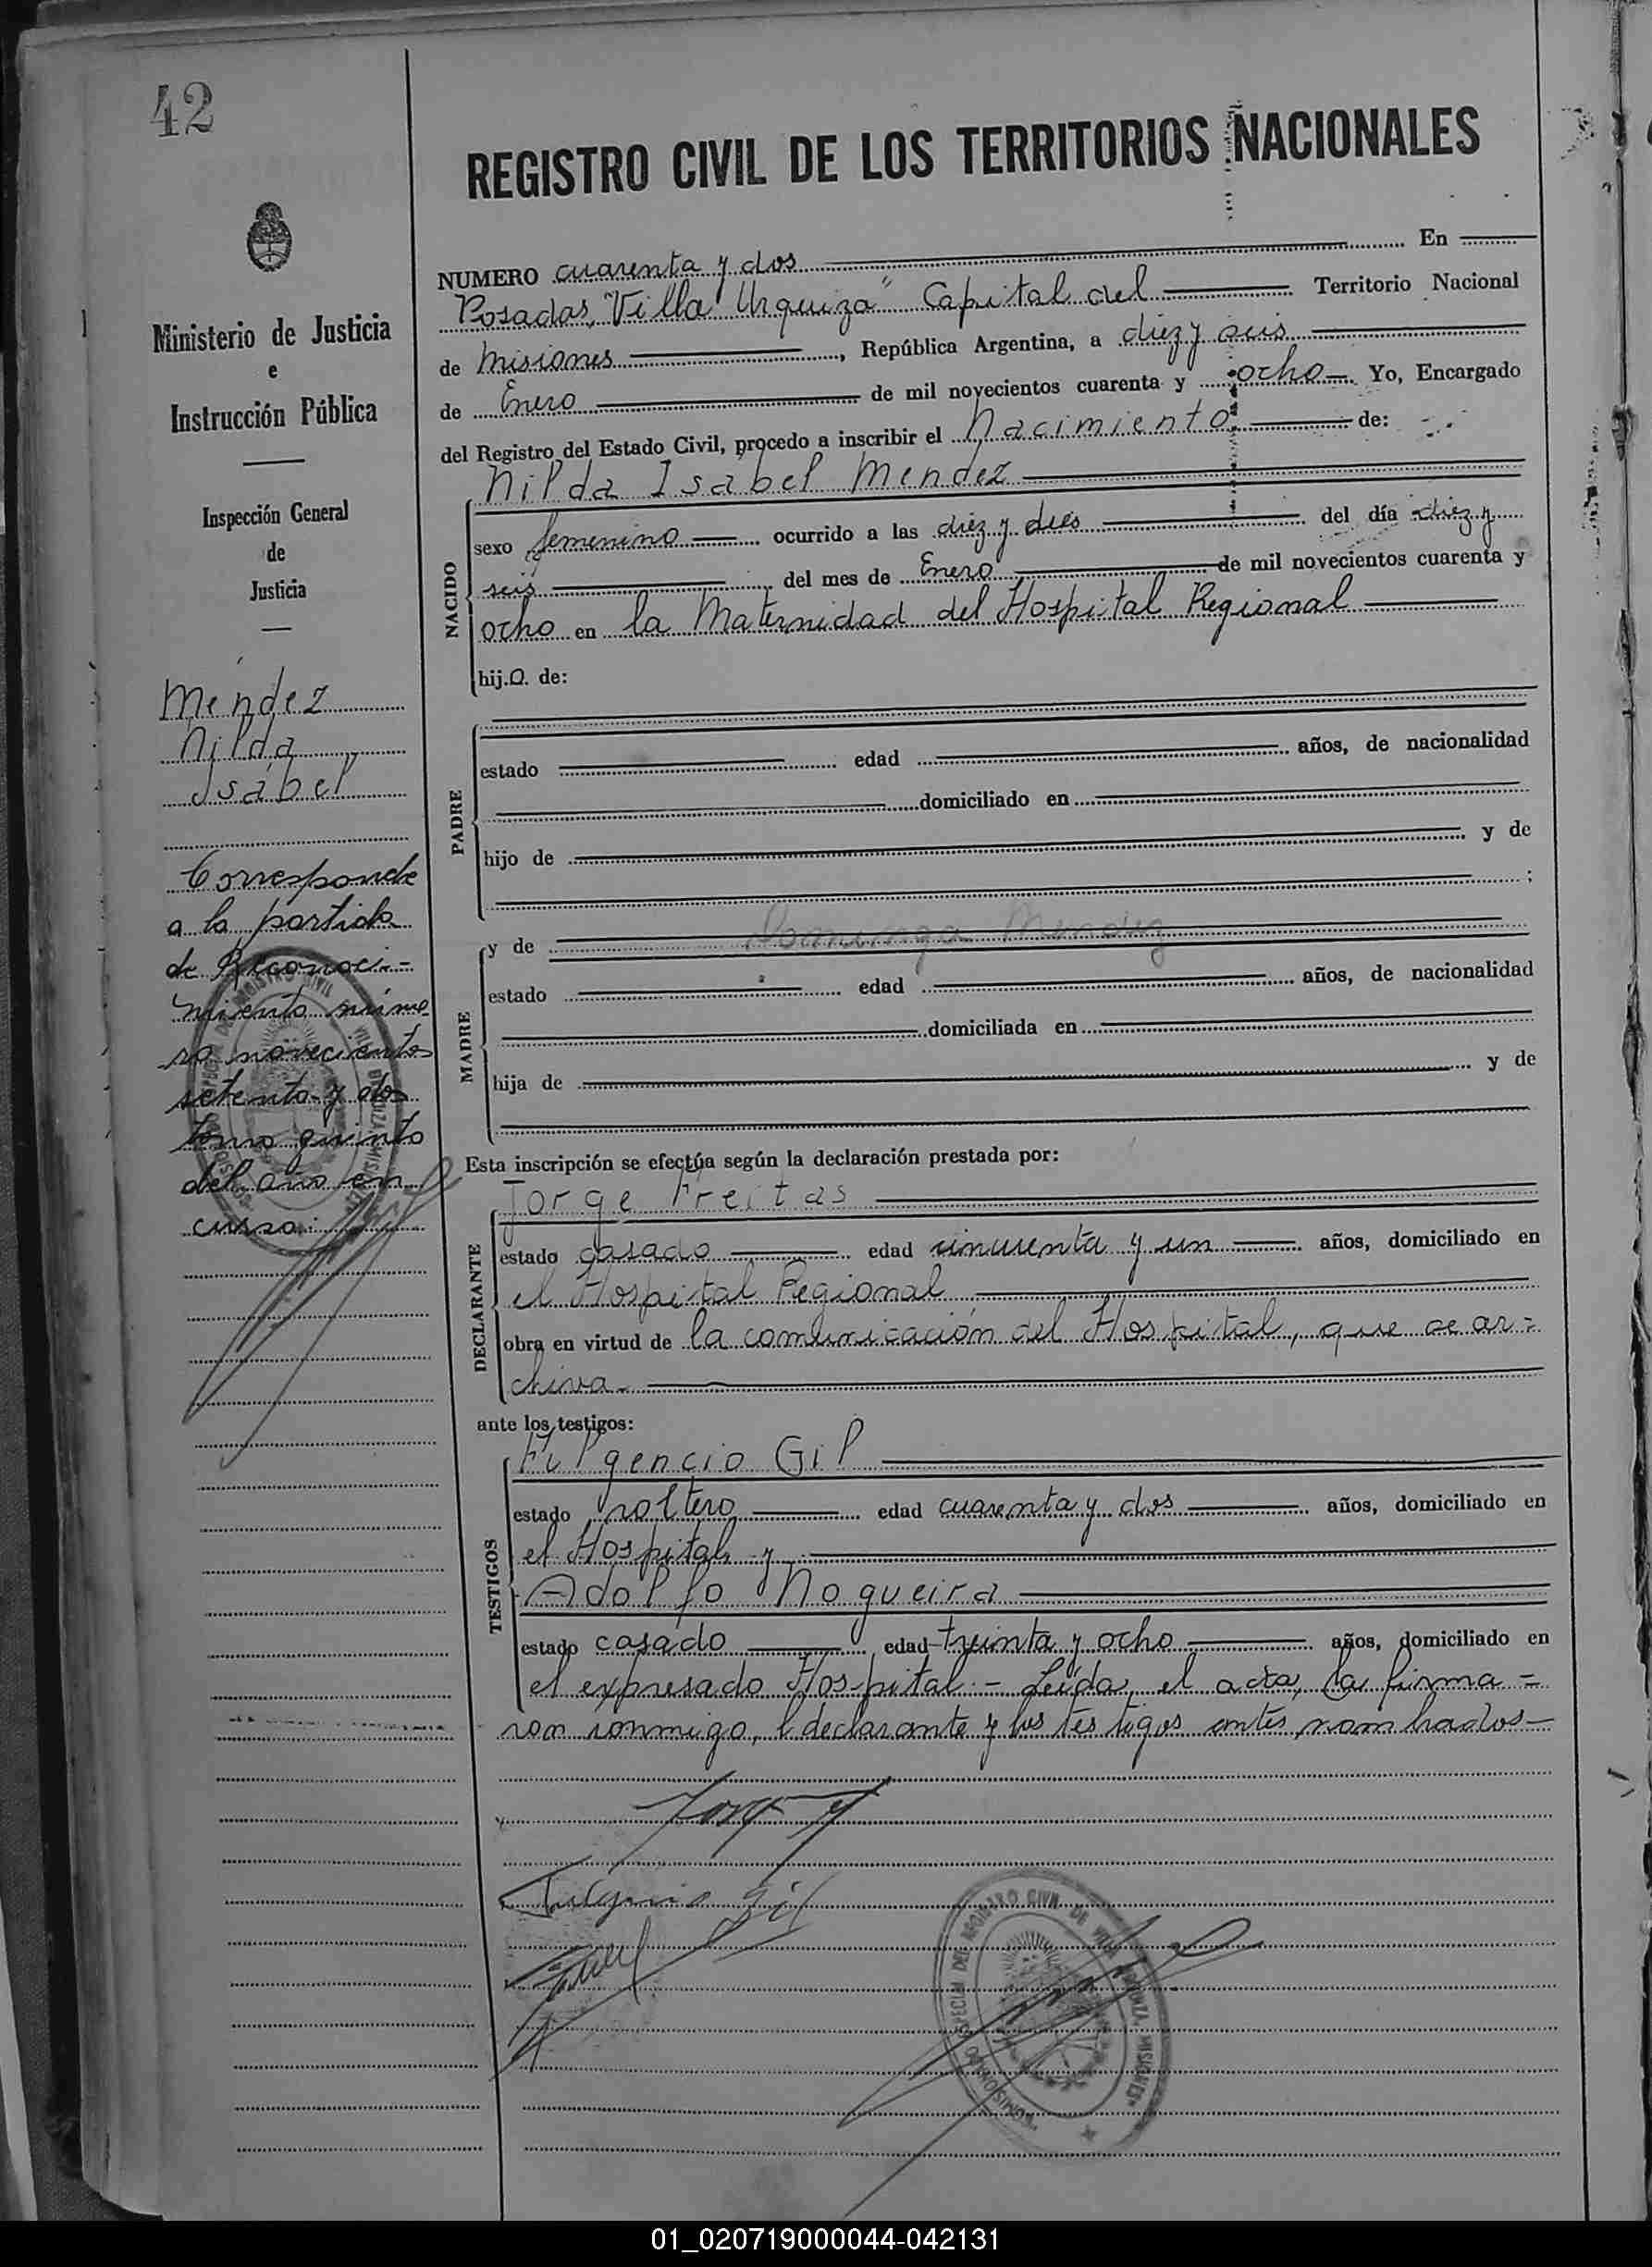 42
REGISTRO CIVIL DE LOS TERRITORIOS NACIONALES
NUMERO cuarenta y dos En
Posadas, "Villa Urquiza" Capital del Territorio Nacional
de Misiones, República Argentina, a diez y seis
de Enero de mil novecientos cuarenta y ocho Yo, Encargado
del Registro del Estado Civil, procedo a inscribir el Nacimiento de:
Nilda Isabel Mendez
NACIDO
sexo femenino ocurrido a las diez y del día diez y
seis del mes de Enero de mil novecientos cuarenta y
ocho en la Maternidad del Hospital Regional
hija de:
PADRE
estado edad años, de nacionalidad
domiciliado en
hijo de y de
;
MADRE
y de Dominga Mendez
estado edad años, de nacionalidad
domiciliada en
hija de y de
Esta inscripción se efectúa según la declaración prestada por:
DECLARANTE
Jorge Freitas
estado casado edad cincuenta y un años, domiciliado en
el Hospital Regional
obra en virtud de la comunicación del Hospital, que se ar=
chiva.
ante los testigos:
TESTIGOS
Fulgencio Gil
estado soltero edad cuarenta y dos años, domiciliado en
el Hospital y
Adolfo Nogueira
estado casado edad treinta y ocho años, domiciliado en
el expresado Hospital.- Leída el acta, la firma=
ron conmigo, el declarante y los testigos antes nombrados-
Fulgencio Gil
Ministerio de Justicia
e
Instrucción Pública
Inspección General
de
Justicia
Mendez
Nilda
Isabel
Corresponde
a la partida
de Reconoci-
miento núme
ro novecientos
setenta y dos
tomo quinto
del año en
curso.
01_020719000044-042131